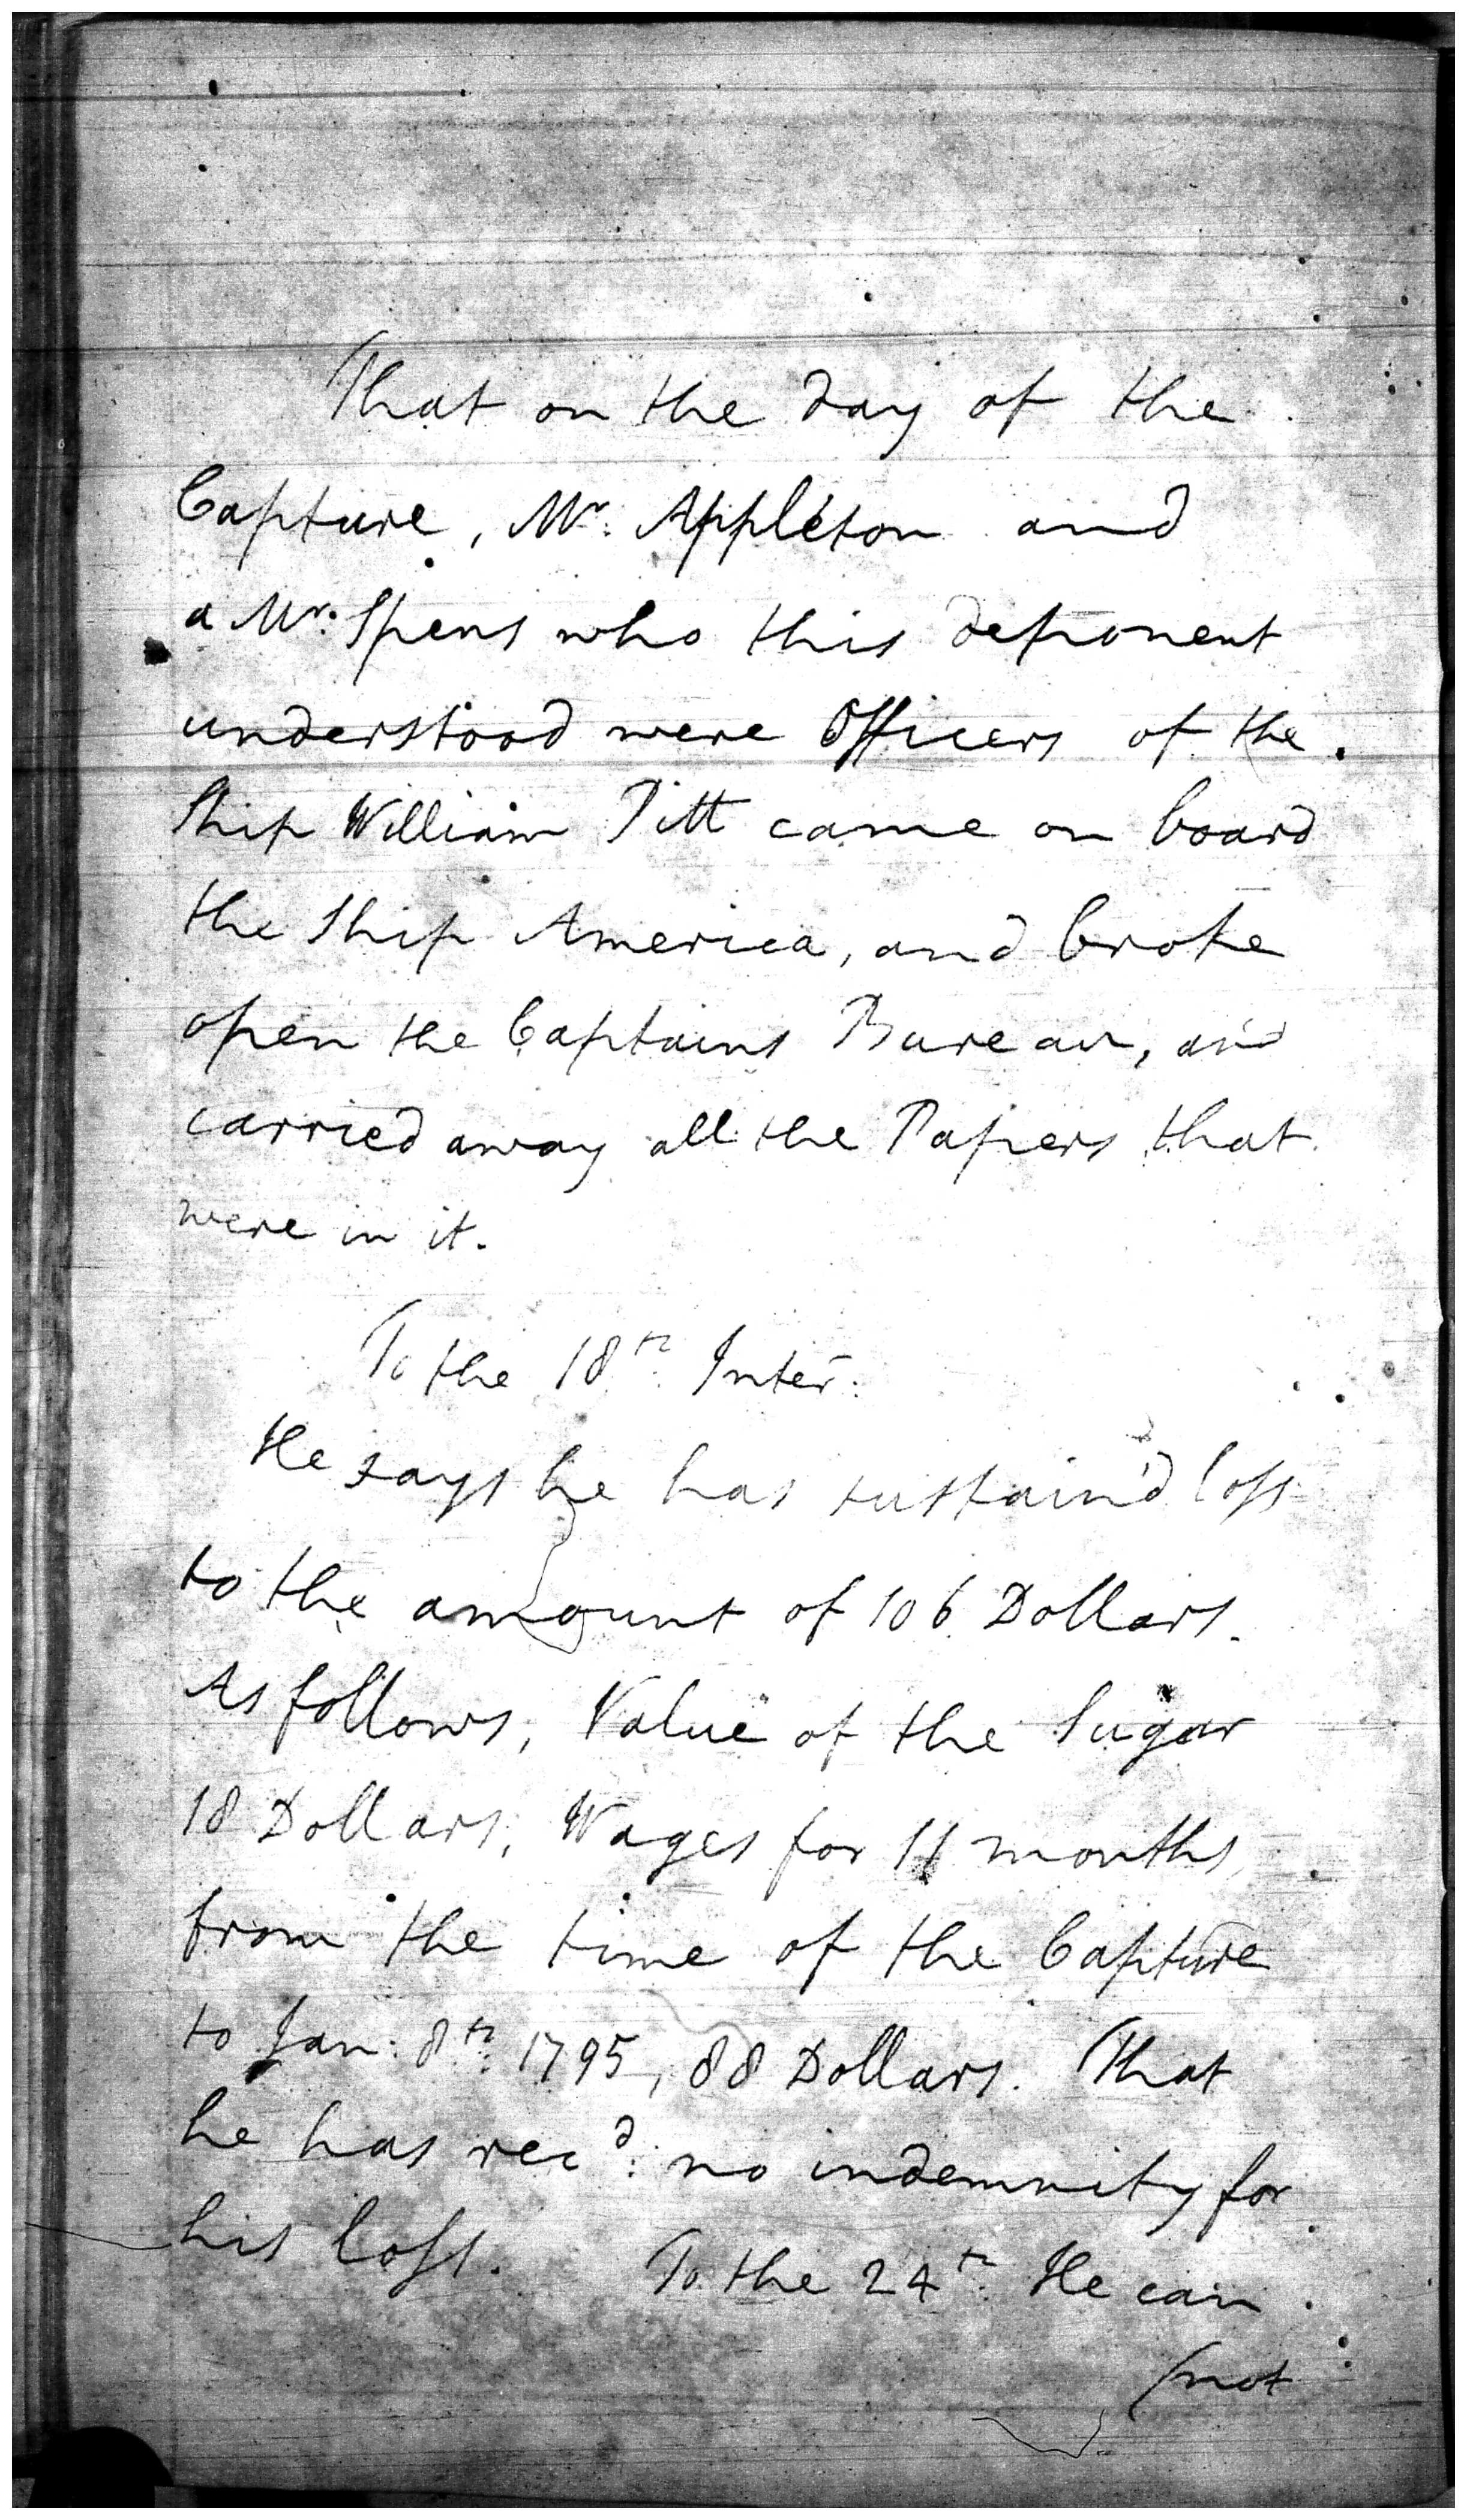 That on the day of the
Capture, Mr. Appleton and
a Mr. Spens who this deponent
understood were Officers of the
Ship William Pitt came on board
the Ship America, and broke
open the Captains Bureau, and
carried away all the Papers that
were in it.
To the 18th. Inter:
He says he has sustain'd loss
to the amount of 106 Dollars.
As follows, Value of the Sugar
18 Dollars, Wages for 11 months
from the time of the Capture
to Jan: 8th. 1795, 88 Dollars. That
he has recd: no indemnity for
his loss. To the 24th. He can
(not